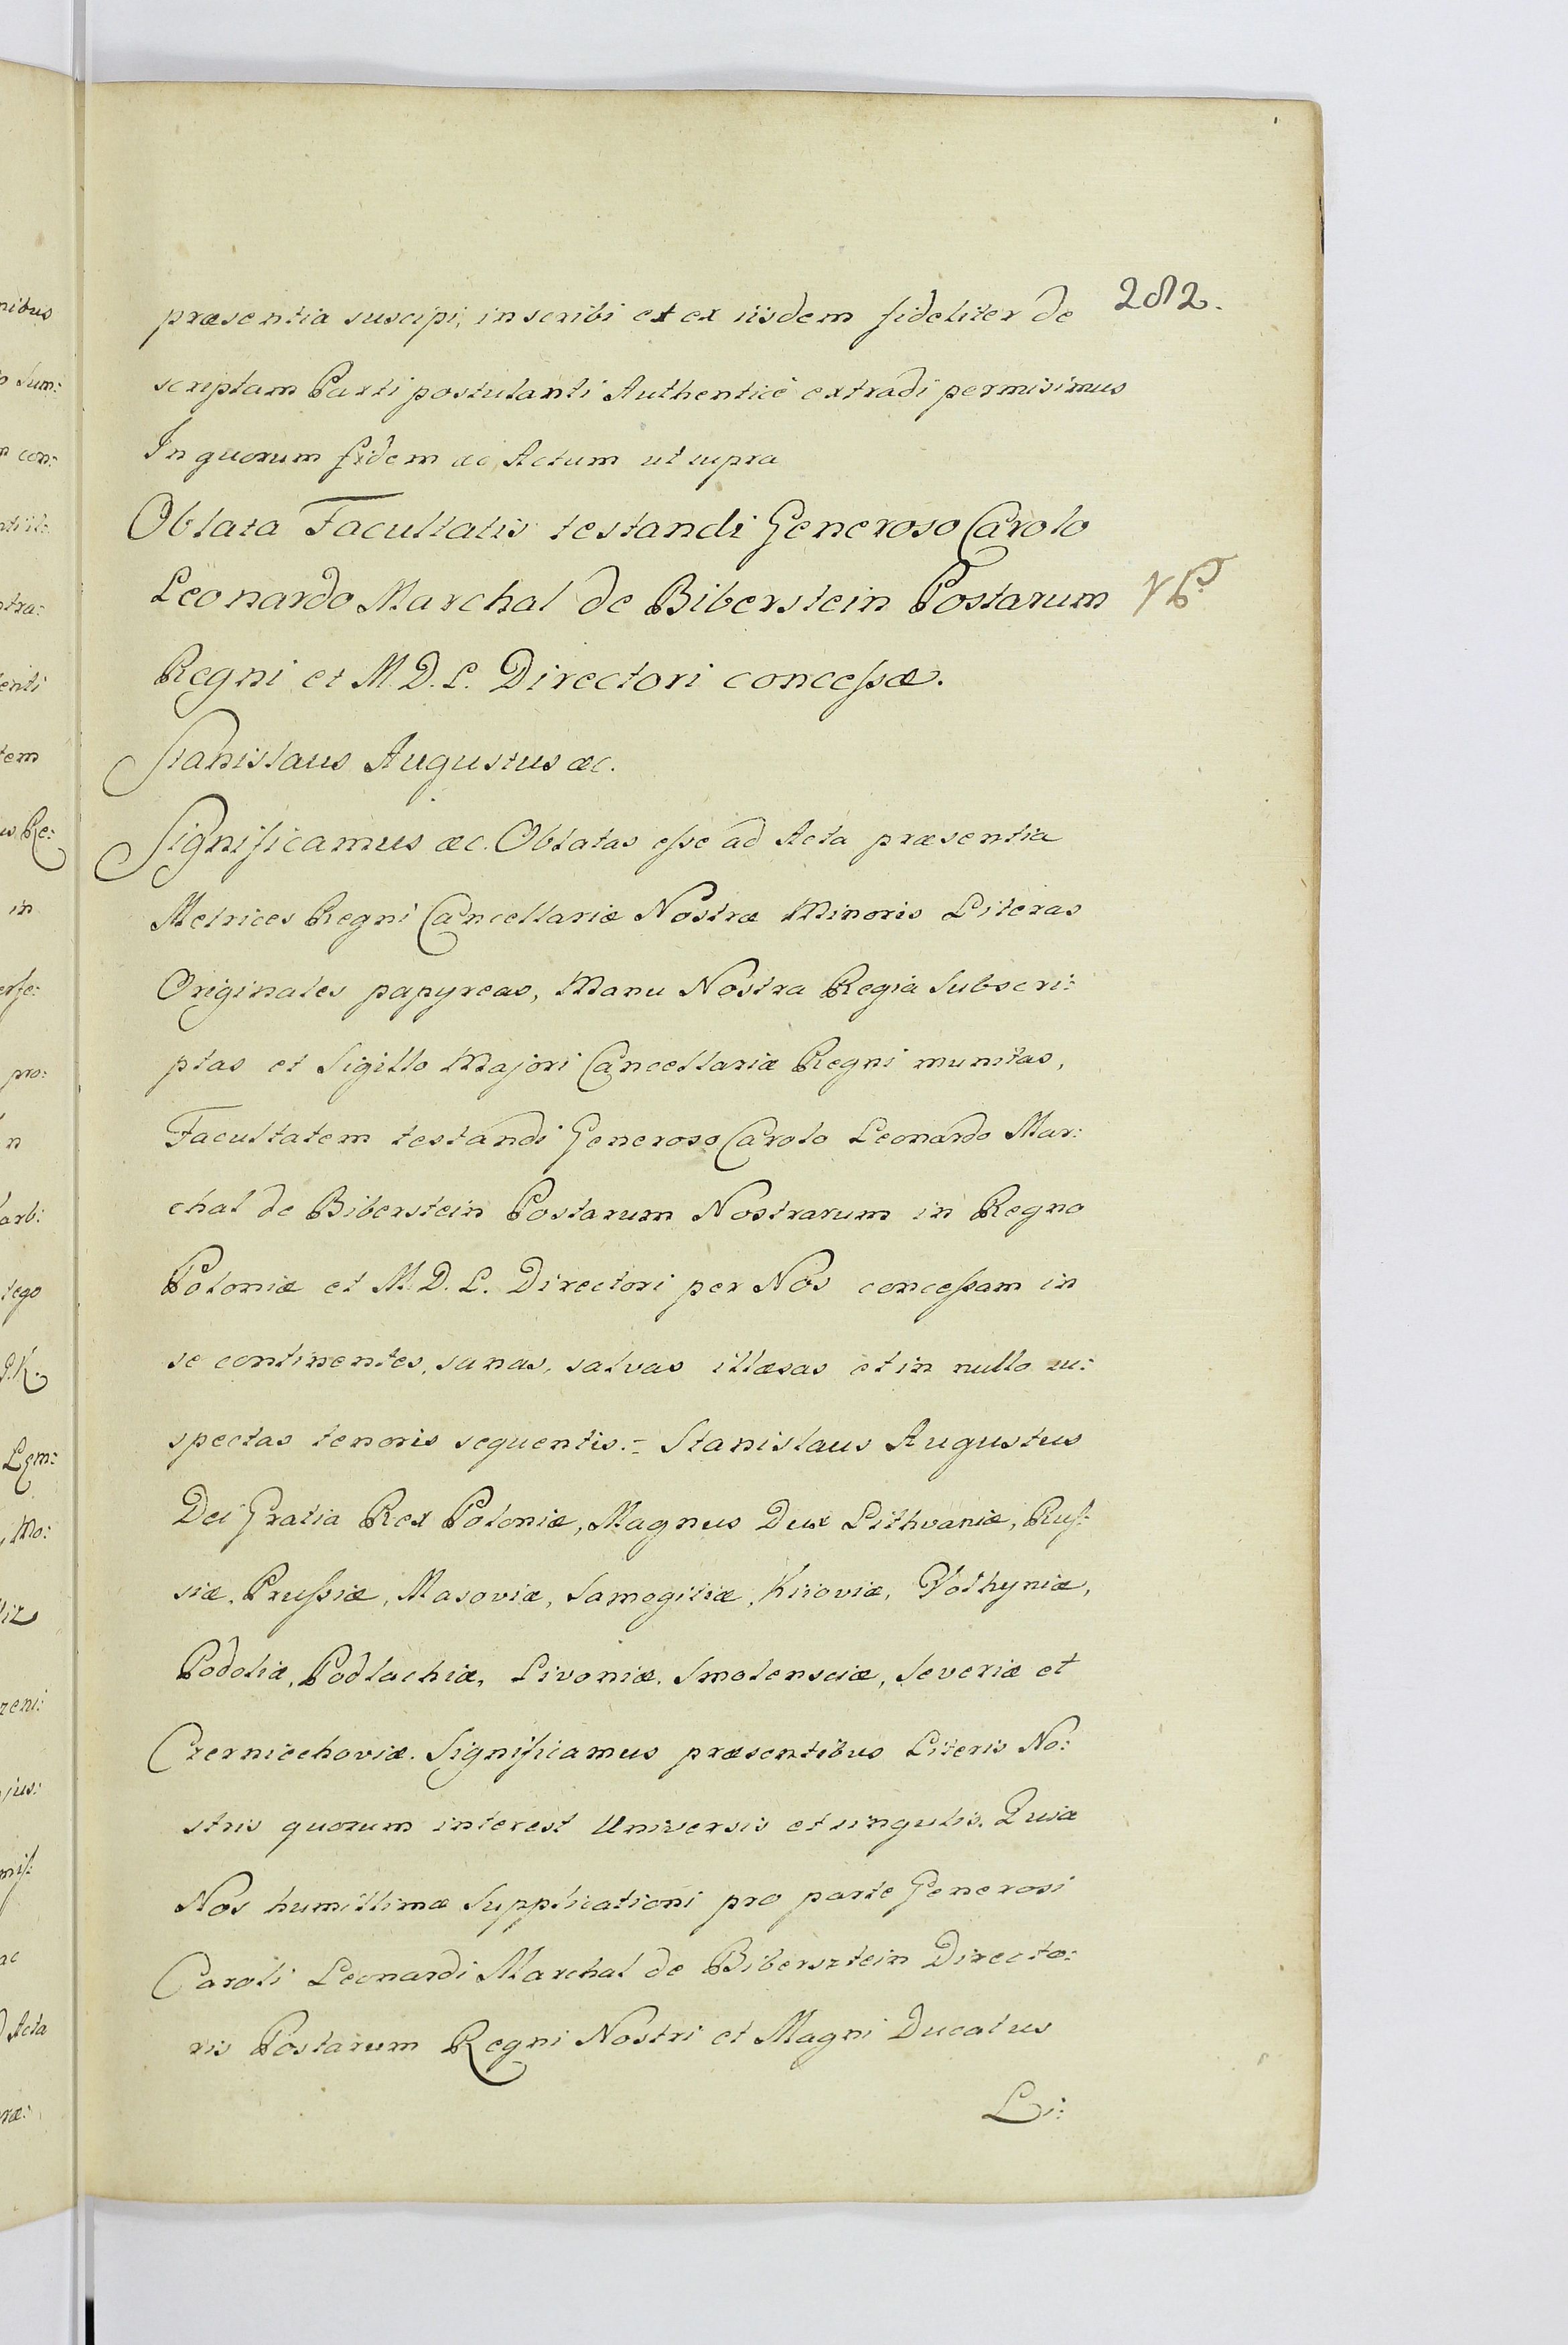 282.
præsentia suscipi, inscribi et ex iisdem fideliter de
scriptam Parti postulanti Authenticè extradi permisimus
In quorum fidem æc, Actum ut supra
Oblata Facultatis testandi Generoso Carolo
Leonardo Marchal de Biberstein Postarum
Regni et M. D. L. Directori conceſsæ.
Stanislaus Augustus æc.
Significamus æc. Oblatas eſse ad Acta præsentia
Metrices Regni Cancellariæ Nostræ Minoris Literas
Originales papyreas, Manu Nostra Regia Subscri:
ptas et Sigillo Majori Cancellariæ Regni munitas,
Facultatem testandi Generoso Carolo Leonardo Mar:
chal de Biberstein Postarum Nostrarum in Regno
Poloniæ et M. D. L. Directori per Nos conceſsam in
se continentes, sanas, salvas illæsas et in nullo su:
spectas tenoris sequentis.= Stanislaus Augustus
Dei Gratia Rex Poloniæ, Magnus Dux Lithvaniæ, Ruſ:
siæ, Pruſsiæ, Masoviæ, Samogitiæ, Kijoviæ, Volhyniæ,
Podoliæ, Podlachiæ, Livoniæ, Smolensciæ, Severiæ et
Czerniechoviæ. Significamus præsentibus Literis No:
stris quorum interest Universis et singulis. Quia
Nos humillimæ Supplicationi pro parte Generosi
Caroli Leonardi Marchal de Bibersztein Directo:
ris Postarum Regni Nostri et Magni Ducatus
Li: